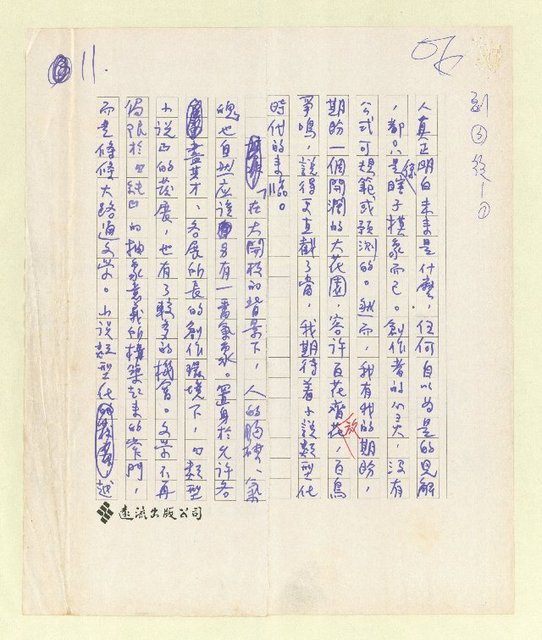 11.
人真正明白未來是什麼，任何自以為是的見解
，都只是瞎子摸象而已。創作者的心靈，沒有
公式可規範或預測的。然而，我有我的期盼，
期盼一個開濶的大花園，容許百花齊放，百鳥
爭鳴，說得更直截了當，我期待着小說類型化
時代的来臨。
在大開放的背景下，人的胸襟、氣
魄也自然应该另有一番氣象。置身於允许各
盡其才、各展所長的創作環境下，「類型
小说」的发展，也有了較多的機會。文学不再
侷限於「純」的抽象意義所構築起来的窄門，
而走條條大路通文学。小说類型化越
遠流出版公司